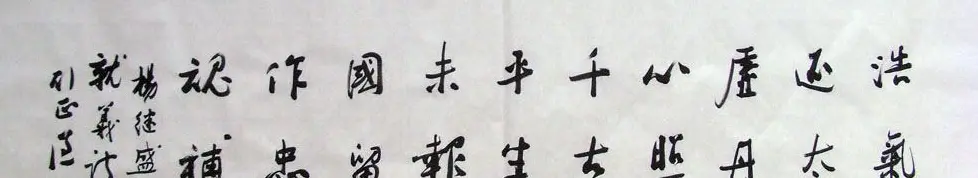 浩氣
还太
虛丹
心照
千古
平生
未報
國留
作忠
魂補
楊继盛
就義詩